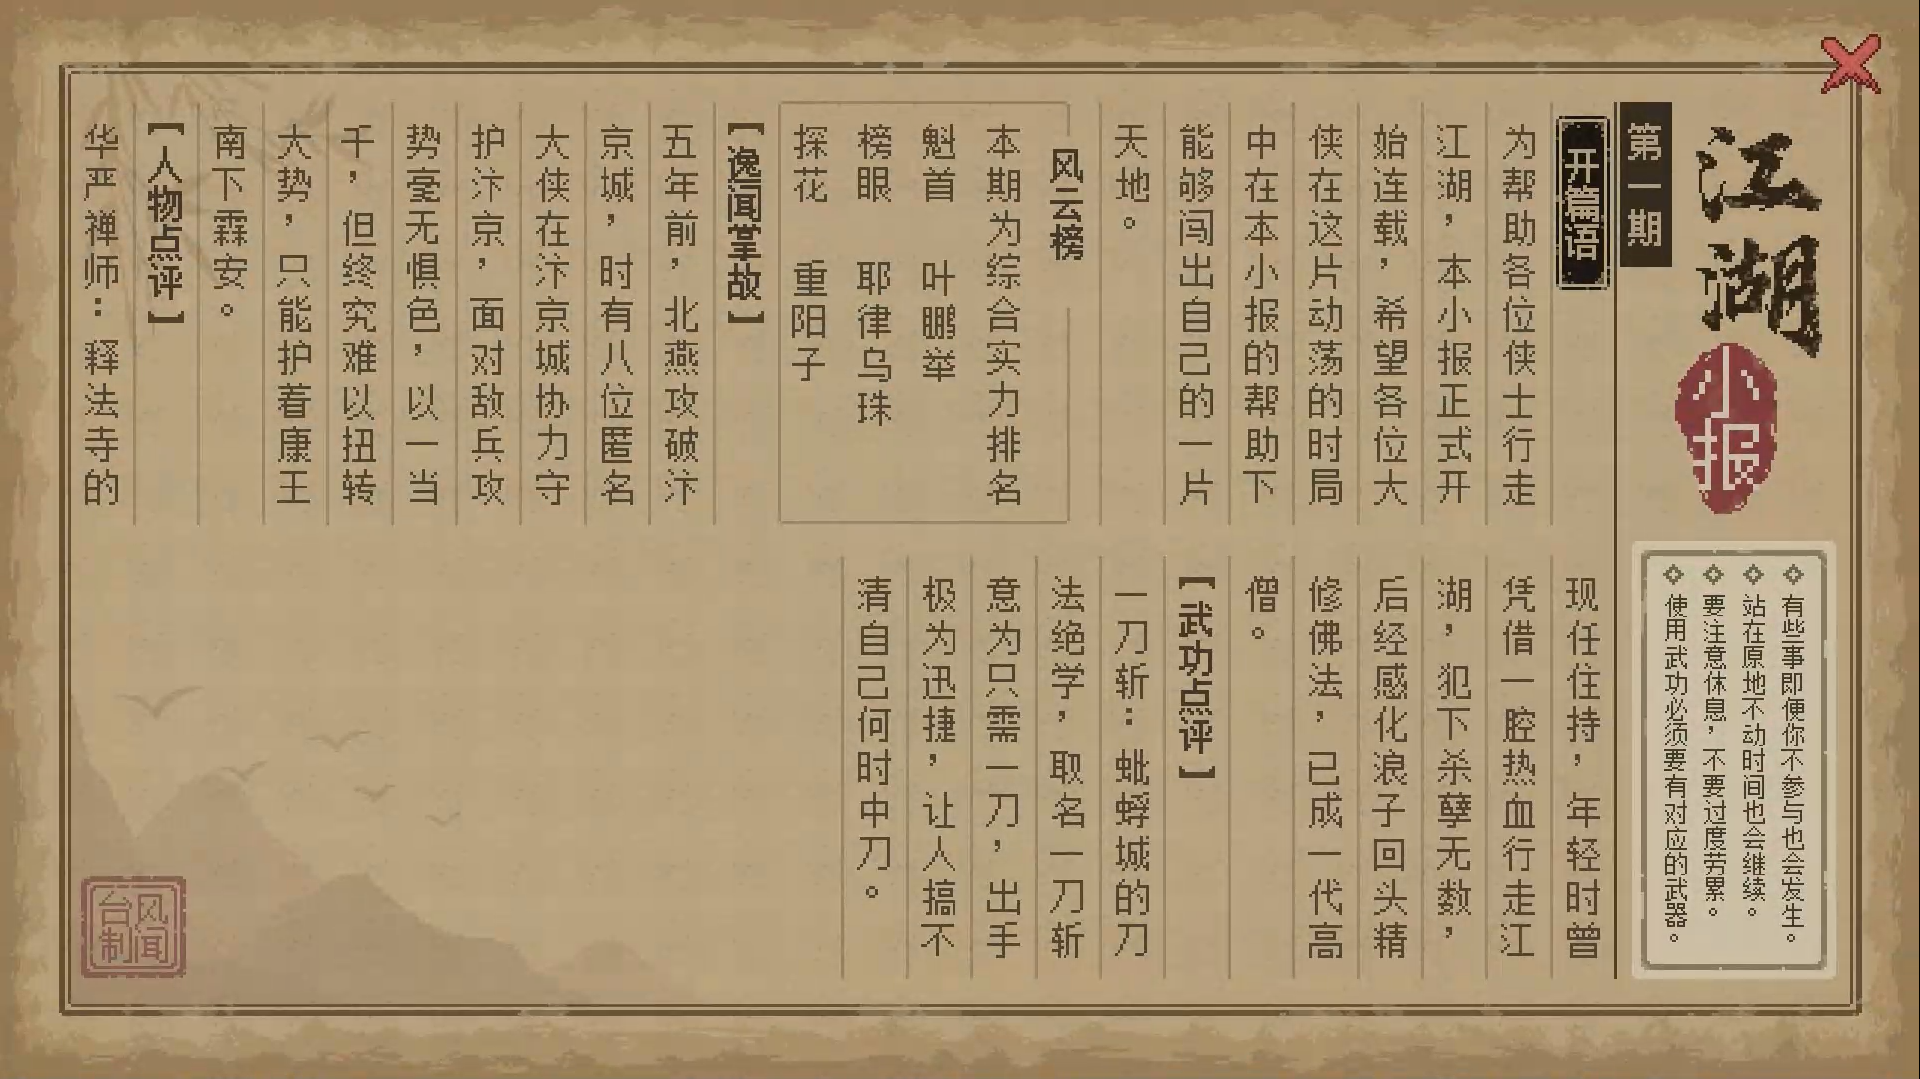 江湖
小报
第一期
有些事即便你不参与也会发生。
站在原地不动时间也会继续。
要注意休息，不要过度劳累。
使用武功必须要有对应的武器。
开篇语
为帮助各位侠士行走
江湖，本小报正式开
始连载，希望各位大
侠在这片动荡的时局
中在本小报的帮助下
能够闯出自己的一片
天地。
风云榜
本期为综合实力排名
魁首 叶鹏举
榜眼 耶律乌珠
探花 重阳子
【逸闻掌故】
五年前，北燕攻破汴
京城，时有八位匿名
大侠在汴京城协力守
护汴京，面对敌兵攻
势毫无惧色，以一当
千，但终究难以扭转
大势，只能护着康王
南下霖安。
【人物点评】
华严禅师：释法寺的
现任住持，年轻时曾
凭借一腔热血行走江
湖，犯下杀孽无数，
后经感化浪子回头精
修佛法，已成一代高
僧。
【武功点评】
一刀斩：蚍蜉城的刀
法绝学，取名一刀斩
意为只需一刀，出手
极为迅捷，让人搞不
清自己何时中刀。
风闻
台制